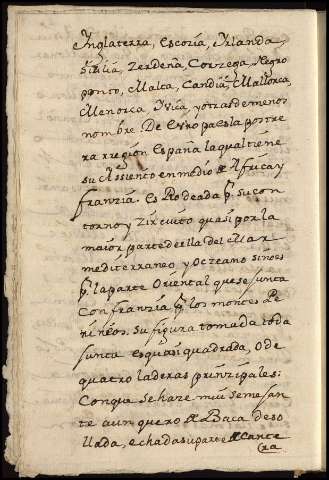 Inglaterra, Escozia, Irlanda,
Sizilia, Zerdeña, Corzega, Negro
ponto, Malta, Candia, Mallorca,
Menorca Yviça, y otras de menos
nombre. De Europa es la postre
ra rregion España la qual tiene
su Assiento en medio de Africa y
franzia. es Rodeada pr. su con
torno y Zircuito quasi por la
maior parte della del Mar
mediterraneo y Oceano sino es
pr. la parte Oriental que se junta
Con franzia pr. los montes Pe
rineos. Su figura tomada toda
junta es quasi quadrada, O de
quatro laderas prinzipales:
Conque se haze mui semejan
te a un quero de Baca deso
llada, echada su parte delante
ra